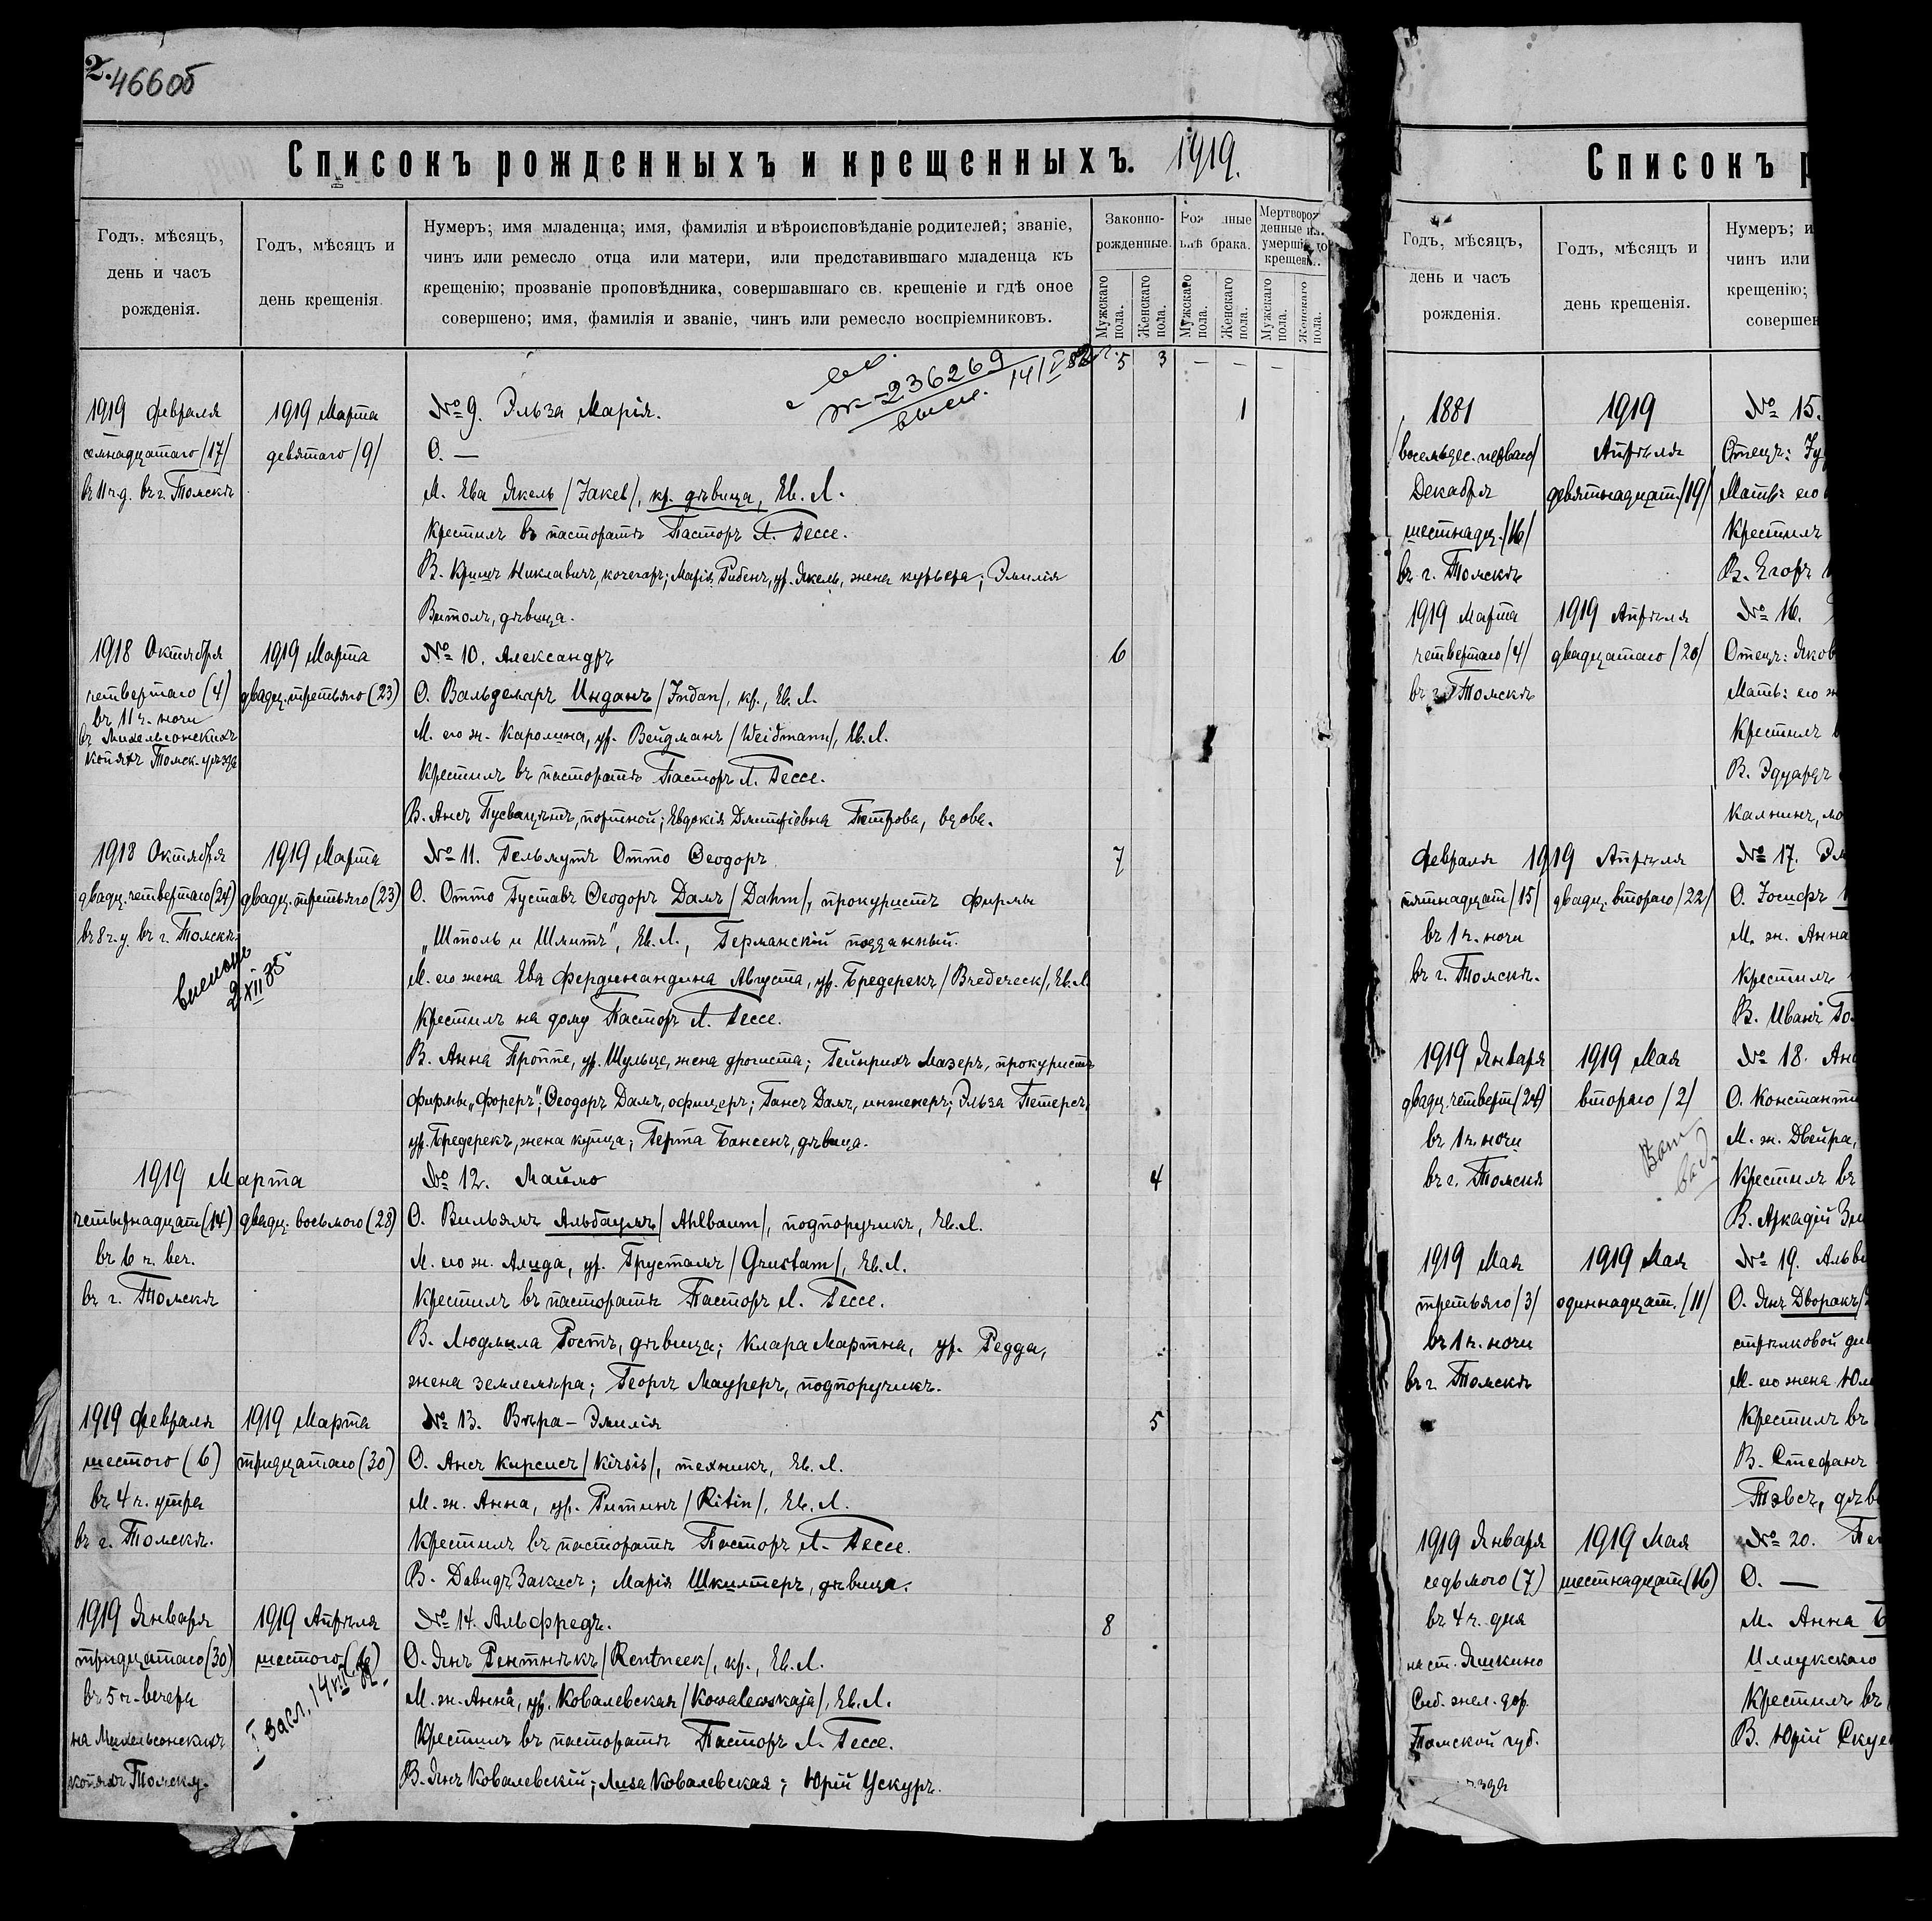 2.
466об
Списокъ рожденныхъ и крещенныхъ. 1919.
Годъ, мѣсяцъ,
день и часъ
рожденія.
Годъ, мѣсяцъ и
день крещенія.
Нумеръ; имя младенца; имя, фамилія и вѣроисповѣданіе родителей; званіе,
чинъ или ремесло отца или матери, или представившаго младенца къ
крещенію; прозваніе проповѣдника, совершавшаго св. крещеніе и гдѣ оное
совершено; имя, фамилія и званіе, чинъ или ремесло воспріемниковъ.
Законно-
рожденные.
брака.
Мужскаго пола.
Женскаго пола.
Мужскаго пола.
Женскаго пола.
Мужскаго пола.
Женскаго пола.
5 3 — — —
ж-236269
1919 Февраля
семнадцатаго /17/
въ 11 ч. д. въ г. Томскѣ
1919 Марта
девятаго /9/
№ 9. Эльза Марія.
1
О. —
М. Ева Якель /Jakel/, кр. дѣвица, Ев. Л.
Крестилъ въ пасторатѣ Пасторъ Л. Гессе.
В. Кришъ Никлавичъ, кочегаръ; Марія Рибенъ, ур. Якель, жена курьера; Эмилія
Витолъ, дѣвица.
1918 Октября
четвертаго (4)
въ 11 ч. ночи
въ Михельсонскихъ
копяхъ Томск. уѣзда
1919 Марта
двадц. третьяго (23)
№ 10. Александръ
6
О. Вальдемаръ Инданъ /Indan/, кр., Ев. Л.
М. его ж. Каролина, ур. Вейдманъ /Weidmann/, Ев. Л.
Крестилъ въ пасторатѣ Пасторъ Л. Гессе.
В. Ансъ портной; Евдокія Дмитріевна Петрова, вдова.
1918 Октября
двадц. четвертаго (24)
въ 8 ч. у. въ г. Томскѣ.
1919 Марта
двадц. третьяго (23)
2 XII 35
№ 11. Гельмутъ Отто Ѳеодоръ
7
О. Отто Густавъ Ѳеодоръ Дамъ /Dahm/, прокуристъ фирмы
„Штоль и Шмитъ", Ев. Л., Германскій подданный.
М. его жена Ева Фердинандина Августа, ур. Бредерекъ /Bredereck/, Ев. Л.
Крестилъ на дому Пасторъ Л. Гессе.
В. Анна Проппе, ур. Шульце, жена дрогиста; Гейнрихъ Мазеръ, прокуристъ
фирмы „Фореръ"; Ѳеодоръ Дамъ, офицеръ; Гансъ Дамъ, инженеръ; Эльза Петерсъ,
ур. Бредерекъ, жена купца; Герта Бансенъ, дѣвица.
1919 Марта
четырнадцат (14)
въ 6 ч. веч.
въ г. Томскѣ
двадц. восьмого (28)
№ 12. Маймо
4
О. Вильямъ Альбаумъ /Ahlbaum/, подпоручикъ, Ев. Л.
М. его ж. Алида, ур. Грустамъ /Grustam/, Ев. Л.
Крестилъ въ пасторатѣ Пасторъ Л. Гессе.
В. Людмила Ростъ, дѣвица; Клара Мартна, ур. Редда,
жена землемѣра; Георгъ Мауреръ, подпоручикъ.
1919 Февраля
шестого (6)
въ 4 ч. утра
въ г. Томскѣ.
1919 Марта
тридцатаго (30)
№ 13. Вѣра-Эмилія
5
О. Ансъ Кирсисъ /Kirsis/, техникъ, Ев. Л.
М. ж. Анна, ур. Ритинъ /Ritin/, Ев. Л.
Крестилъ въ пасторатѣ Пасторъ Л. Гессе.
В. Давидъ Закисъ; Марія Шкилтеръ, дѣвица.
1919 Января
тридцатаго (30)
въ 5 ч. вечера
на Михельсонскихъ
копяхъ Томск. у.
1919 Апрѣля
шестого (6)
№ 14. Альфредъ.
8
О. Янъ Рентнѣкъ /Rentneek/, кр., Ев. Л.
М. ж. Анна, ур. Ковалевская /Kowalewskaja/, Ев. Л.
Крестилъ въ пасторатѣ Пасторъ Л. Гессе.
В. Янъ Ковалевскій; Лиза Ковалевская; Юрій Ускуръ.
Списокъ р
Годъ, мѣсяцъ,
день и часъ
рожденія.
Годъ, мѣсяцъ и
день крещенія.
Нумеръ; и
чинъ или
крещенію;
совершен
1881
/восемьдес. перваго/
Декабря
шестнадц. /16/
въ г. Томскѣ
1919
Апрѣля
девятнадцат. /19/
№ 15.
Отецъ:
Мать: его
Крестилъ
В. Егоръ
1919 Марта
четвертаго /4/
въ г. Томскѣ
1919 Апрѣля
двадцатаго /20/
№ 16.
Отецъ: Яков
Мать: его ж
Крестилъ в
В. Эдуардъ
Калнинъ, мо
Февраля 1919 Апрѣля
пятнадцат /15/
въ 1 ч. ночи
въ г. Томскѣ.
двадц. второго /22/
№ 17. Эм
О. Іосифъ
М. ж. Анна
Крестилъ
В. Иванъ Го
1919 Января
двадц. четверт (24)
въ 1 ч. ночи
въ г. Томскѣ
1919 Мая
второго /2/
№ 18. Ан
О. Константи
М. ж. Двейра,
Крестилъ въ
В. Аркадій
1919 Мая
третьяго /3/
въ 1 ч. ночи
въ г. Томскѣ
1919 Мая
одиннадцат. /11/
№ 19. Альви
О. Янъ Дворакъ/
стрѣлковой ди
М. его жена Юл
Крестилъ въ
В. Стефанъ
Тэвсъ, дѣв
1919 Января
седьмого (7)
въ 4 ч. дня
на ст. Яшкино
Сиб. жел. дор.
Томской губ.
1919 Мая
шестнадцат (16)
№ 20.
О. —
М. Анна
Иллукскаго
Крестилъ въ
В. Юрій